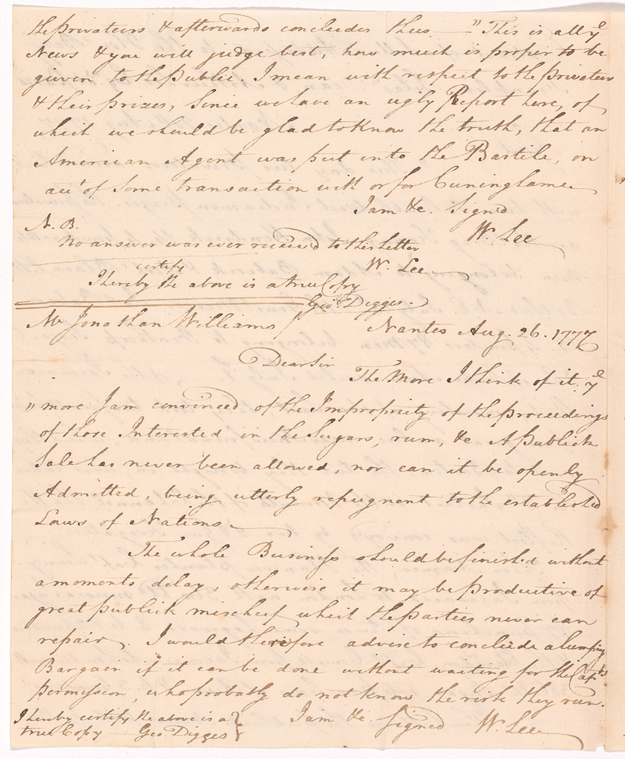 the privateers & afterwards concludes thus — "This is all ye
News & you will judge best, how much is proper to be
given to the public. I mean with respect to the privateers
& their prizes, Since we have an ugly Report here, of
which we should be glad to know the truth, that an
American Agent was put into the Bastile, on
acct of Some transaction with or for Cuninghame
I am &c. Signed
W. Lee
N. B.
No answer was ever received to this Letter
W. Lee
I hereby certify the above is a true Copy
Geo: Digges.
Mr Jonathan Williams
Nantes Aug. 26. 1777
Dear Sir
The More I think of it, ye
" more I am convinced of the Impropriety of the proceedings
of those Interested in the Sugars, rum, &c A publick
Sale has never been allowed, nor can it be openly
Admitted, being utterly repugnant to the established
Laws of Nations
The whole Business should be finish'd without
a moments delay, otherwise it may be productive of
great publick mischief which the parties never can
repair. I would therefore advise to conclude a lumping
Bargain if it can be done without waiting for the Capts
permission, who probably do not know the risk they run.
I am &c Signed W. Lee
I hereby certify the above is a
true Copy Geo Digges